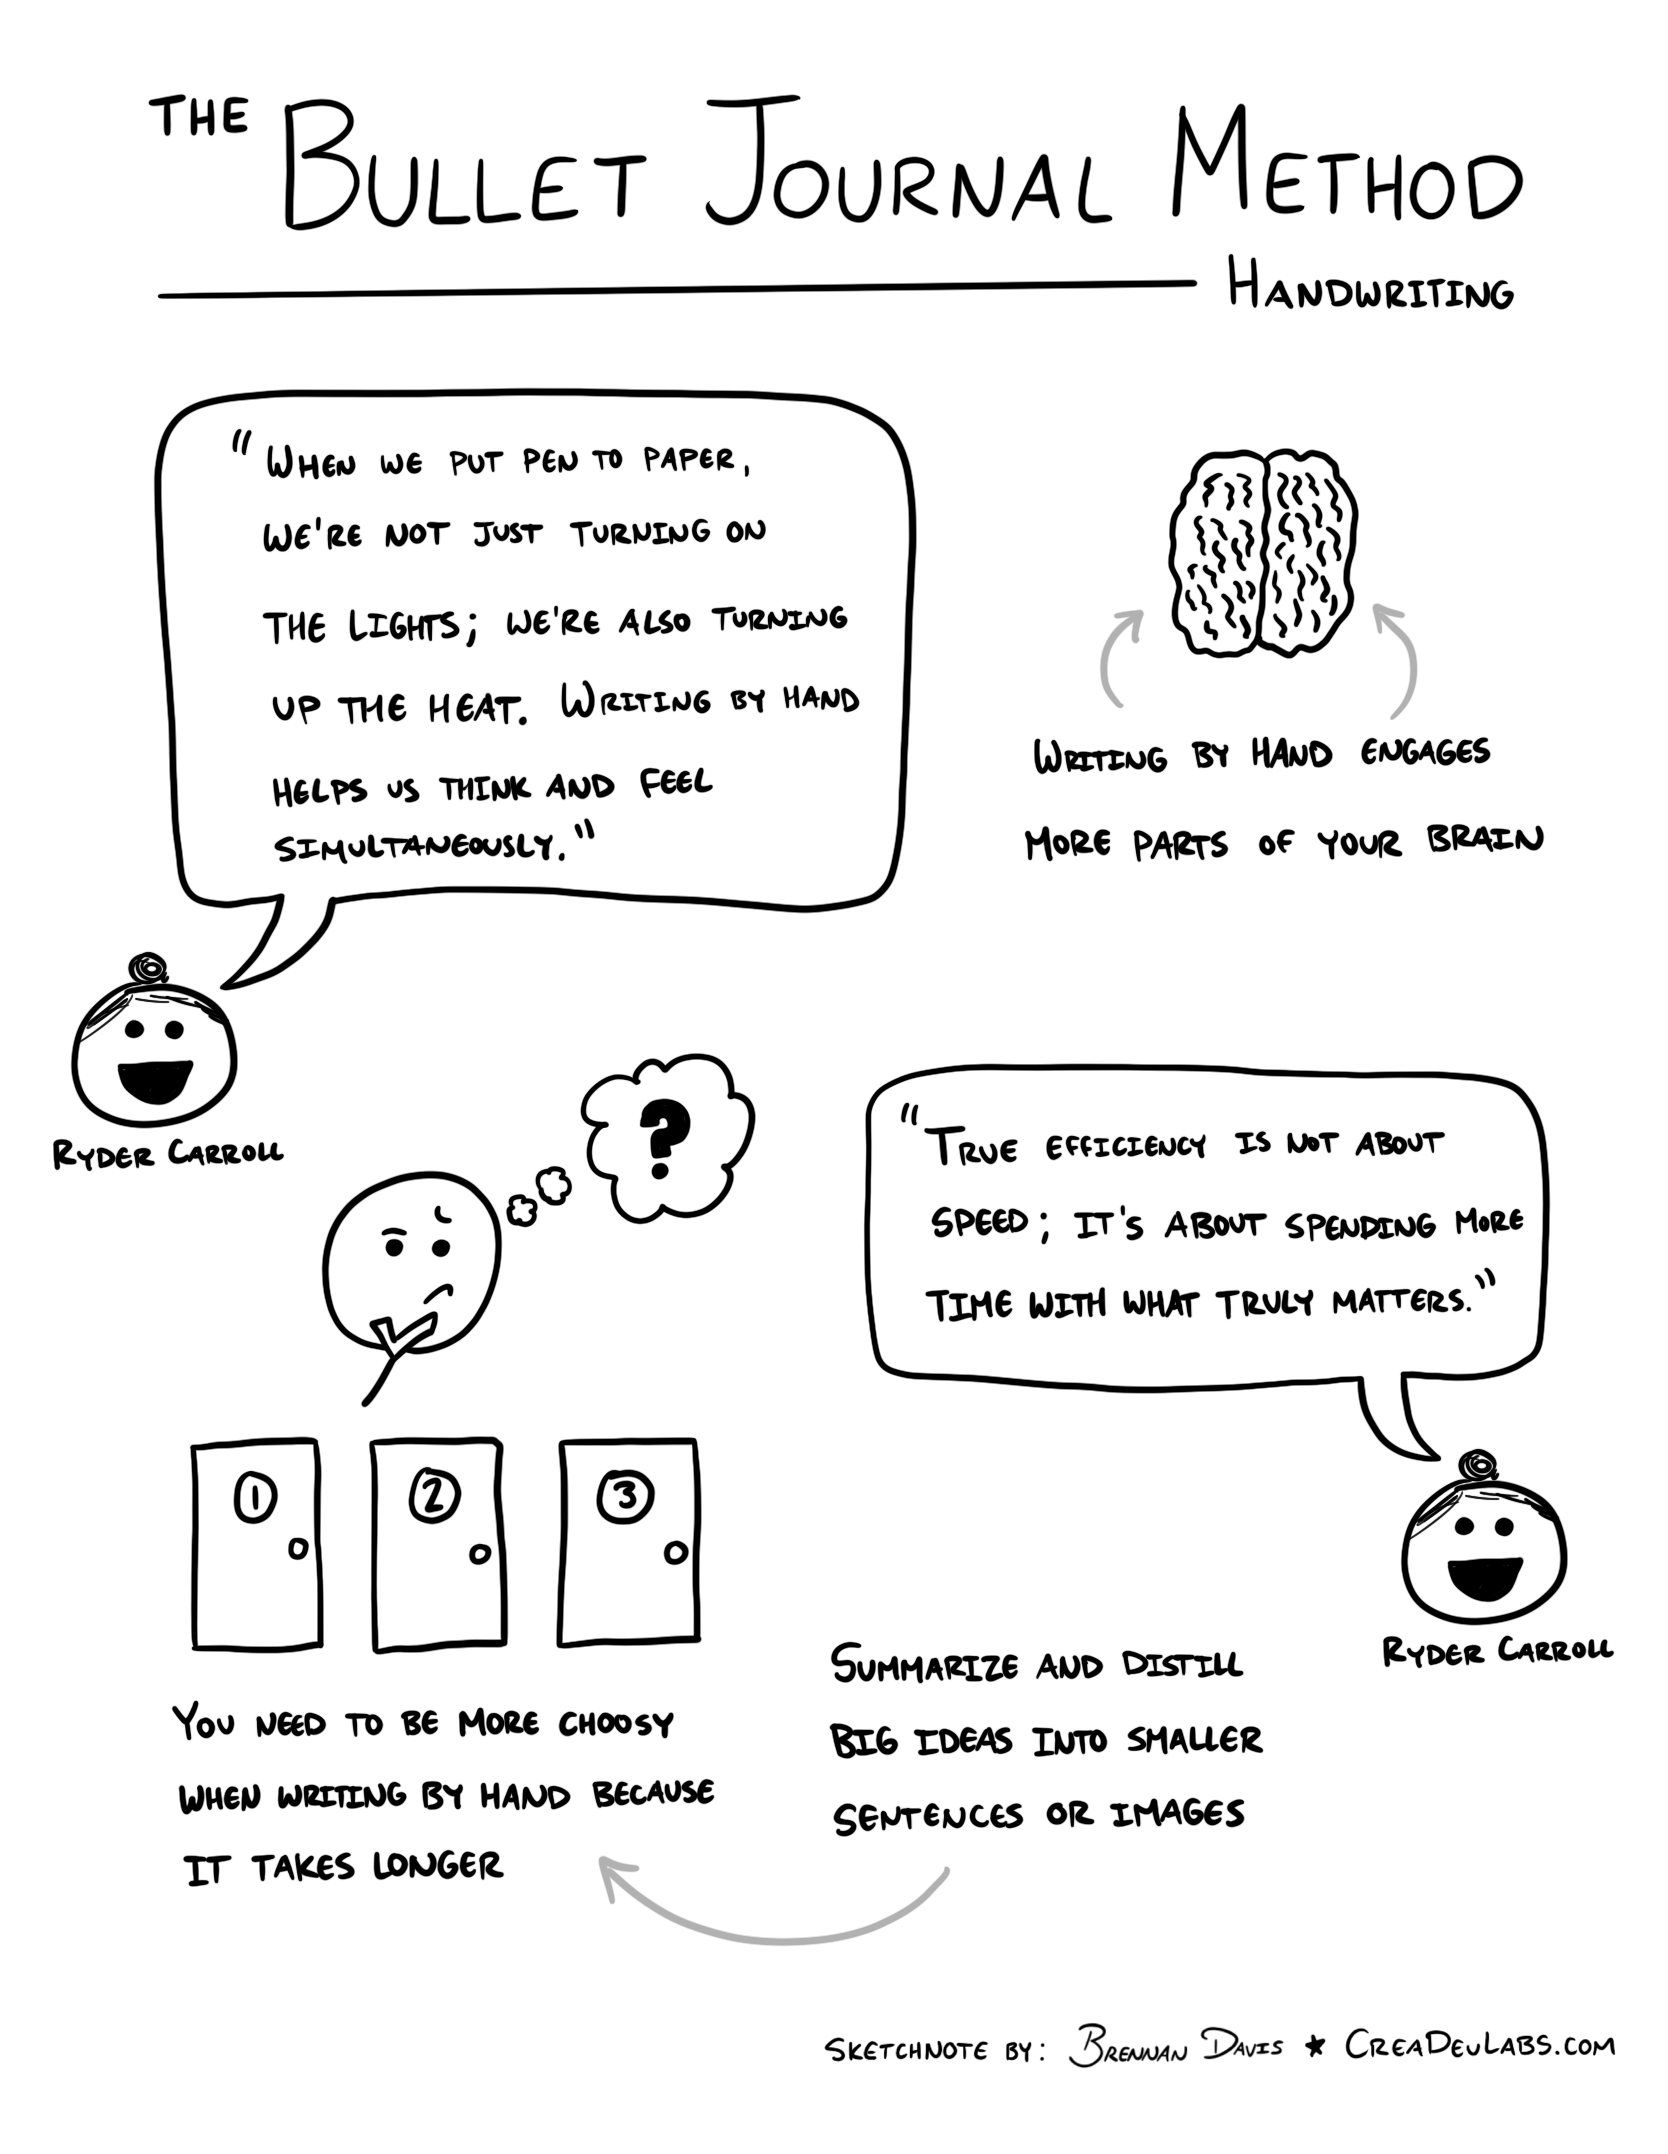 THE BULLET JOURNAL METHOD
HANDWRITING
"WHEN WE PUT PEN TO PAPER,
WE'RE NOT JUST TURNING ON
THE LIGHTS; WE'RE ALSO TURNING
UP THE HEAT. WRITING BY HAND
HELPS US THINK AND FEEL
SIMULTANEOUSLY."
RYDER CARROLL
WRITING BY HAND ENGAGES
MORE PARTS OF YOUR BRAIN
?
"TRUE EFFICIENCY IS NOT ABOUT
SPEED; IT'S ABOUT SPENDING MORE
TIME WITH WHAT TRULY MATTERS."
RYDER CARROLL
1 2 3
YOU NEED TO BE MORE CHOOSY
WHEN WRITING BY HAND BECAUSE
IT TAKES LONGER
SUMMARIZE AND DISTILL
BIG IDEAS INTO SMALLER
SENTENCES OR IMAGES
SKETCHNOTE BY: BRENNAN DAVIS ★ CREADEVLABS.COM